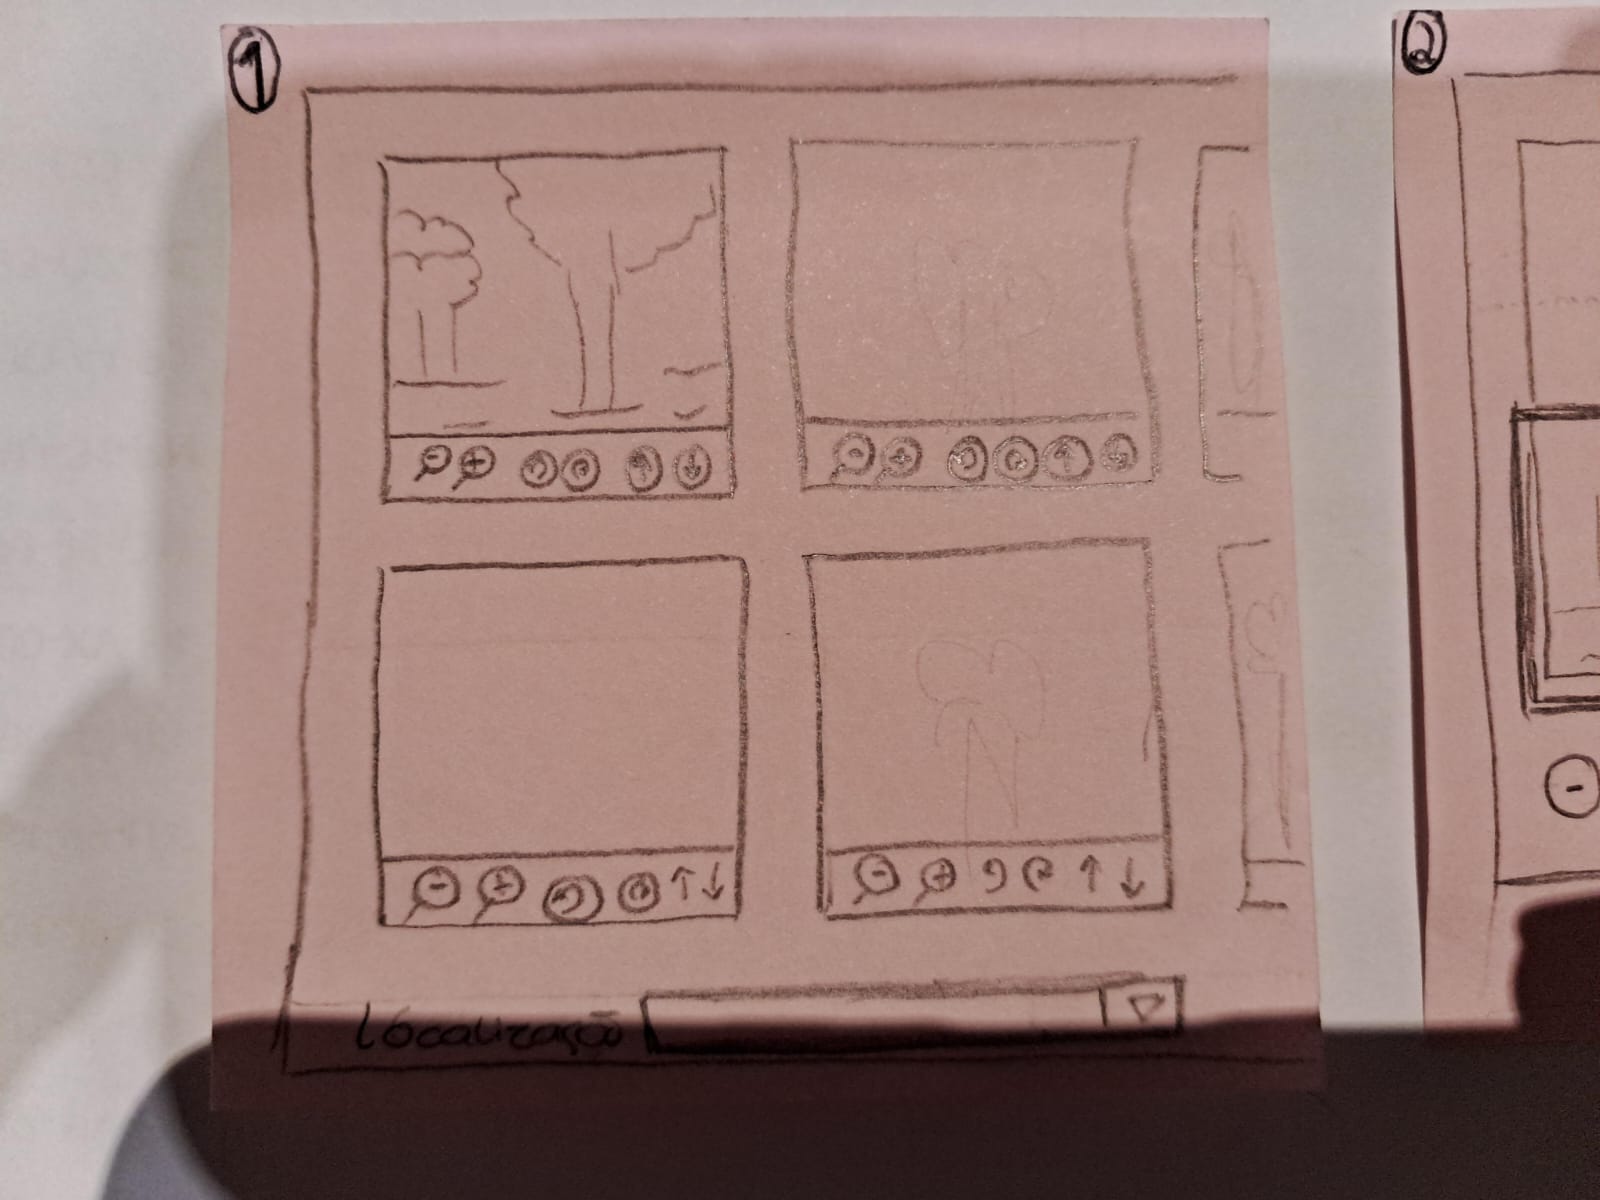 1
2
- + ↑ ↓
- + ↑ ↓
- + ↑ ↓
- + ↑ ↓
-
Localização